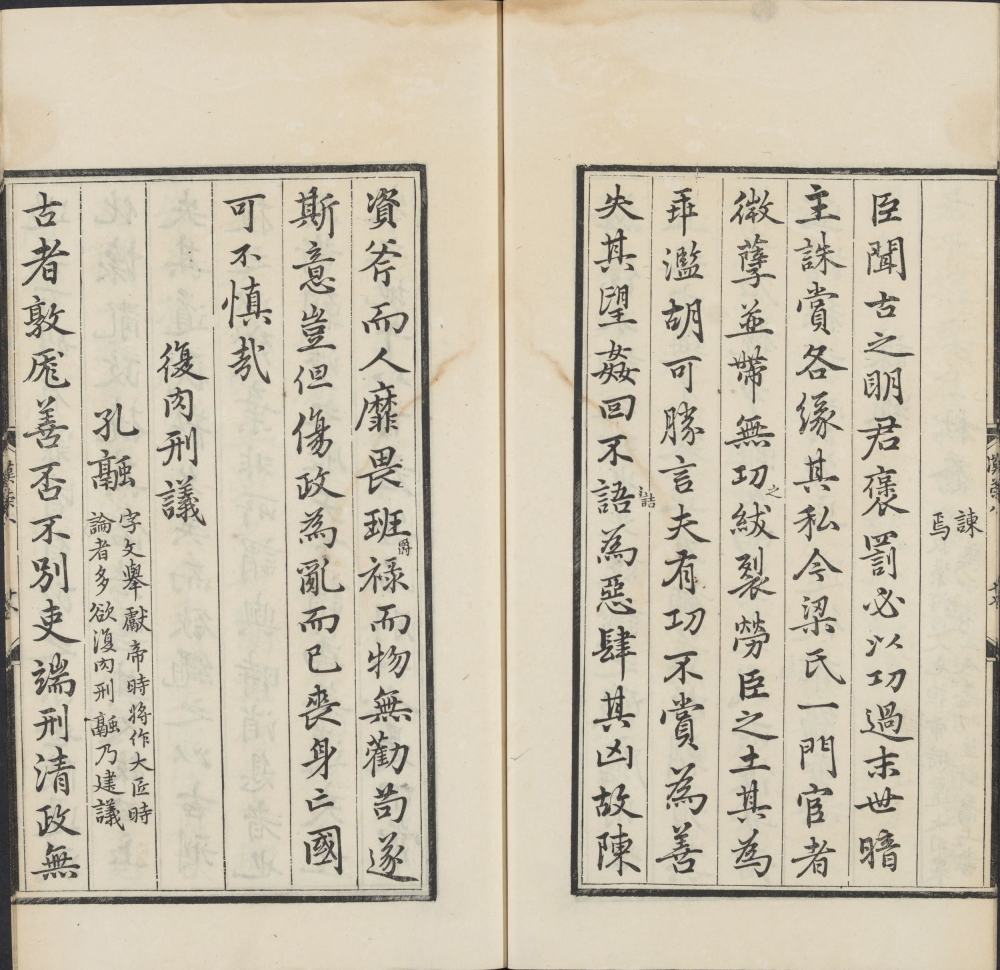 諫
焉
臣聞古之明君褒罰必以功過末世暗
主誅賞各緣其私今梁氏一門宦者
微孽並帶無功之紱裂勞臣之土其為
乖濫胡可勝言夫有功不賞為善
失其望姦回不詰為惡肆其凶故陳
資斧而人靡畏班爵祿而物無勸苟遂
斯意豈但傷政為亂而已喪身亡國
可不慎哉
復肉刑議
孔融
字文舉獻帝時將作大匠時
論者多欲復肉刑融乃建議
古者敦厖善否不別吏端刑清政無